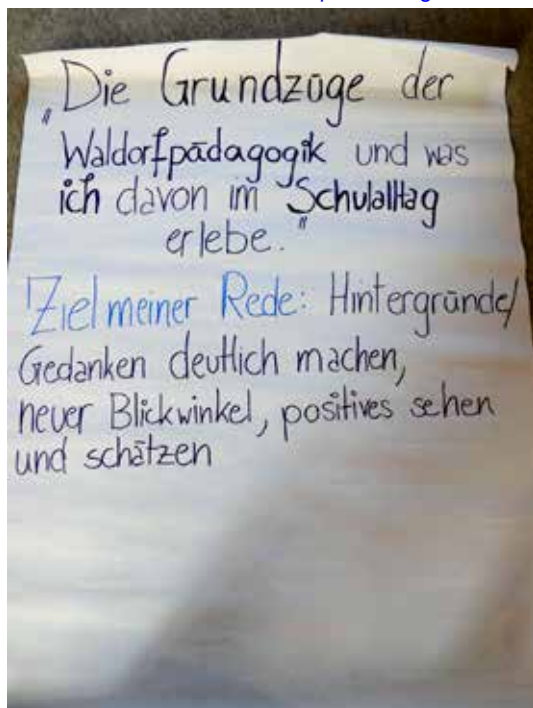 „Die Grundzüge der
Waldorfpädagogik und was
ich davon im Schulalltag
erlebe."
Ziel meiner Rede: Hintergründe/
Gedanken deutlich machen,
neuer Blickwinkel, positives sehen
und schätzen